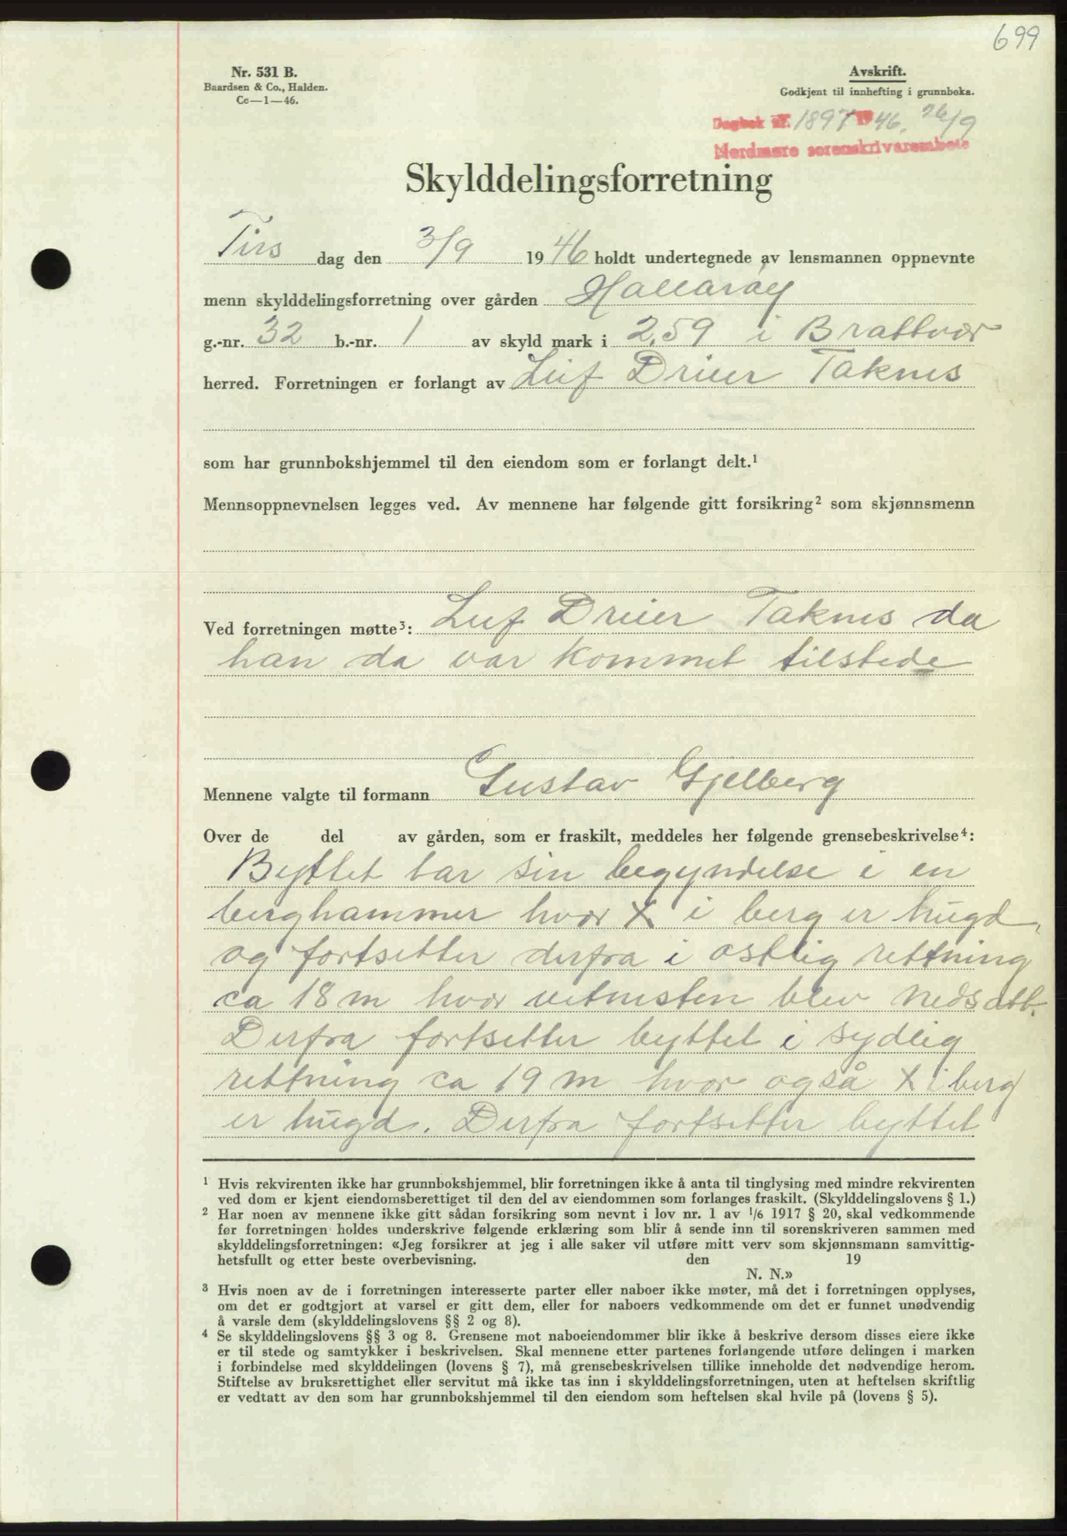 699
Nr. 531 B.
Baardsen & Co., Halden.
Cc—1—46.
Avskrift.
Godkjent til innhefting i grunnboka.
Dagbok nr. 1897 1946. 26/9
Nordmøre sorenskriverembete
Skylddelingsforretning
Tirs dag den 3/9 1946 holdt undertegnede av lensmannen oppnevnte
menn skylddelingsforretning over gården Hallarøy
g.-nr. 32 b.-nr. 1 av skyld mark i 2.59 i Brattvær
herred. Forretningen er forlangt av Leif Drier Taknes
som har grunnbokshjemmel til den eiendom som er forlangt delt.¹
Mennsoppnevnelsen legges ved. Av mennene har følgende gitt forsikring² som skjønnsmenn
Ved forretningen møtte³: Leif Drier Taknes da
han da var kommet tilstede
Mennene valgte til formann Gustav Gjelberg
Over de del av gården, som er fraskilt, meddeles her følgende grensebeskrivelse⁴:
Byttet tar sin begyndelse i en
berghammer hvor X i berg er hugd,
og fortsetter derfra i østlig rettning
ca 18 m hvor vitnesten blev nedsatt.
Derfra fortsetter byttet i sydlig
rettning ca 19 m hvor også X i berg
er hugd. Derfra fortsetter byttet
¹ Hvis rekvirenten ikke har grunnbokshjemmel, blir forretningen ikke å anta til tinglysing med mindre rekvirenten
ved dom er kjent eiendomsberettiget til den del av eiendommen som forlanges fraskilt. (Skylddelingslovens § 1.)
² Har noen av mennene ikke gitt sådan forsikring som nevnt i lov nr. 1 av ¹/6 1917 § 20, skal vedkommende
før forretningen holdes underskrive følgende erklæring som blir å sende inn til sorenskriveren sammen med
skylddelingsforretningen: «Jeg forsikrer at jeg i alle saker vil utføre mitt verv som skjønnsmann samvittig-
hetsfullt og etter beste overbevisning. den 19
N. N.»
³ Hvis noen av de i forretningen interesserte parter eller naboer ikke møter, må det i forretningen opplyses,
om det er godtgjort at varsel er gitt dem, eller for naboers vedkommende om det er funnet unødvendig
å varsle dem (skylddelingslovens §§ 2 og 8).
⁴ Se skylddelingslovens §§ 3 og 8. Grensene mot naboeiendommer blir ikke å beskrive dersom disses eiere ikke
er til stede og samtykker i beskrivelsen. Skal mennene etter partenes forlangende utføre delingen i marken
i forbindelse med skylddelingen (lovens § 7), må grensebeskrivelsen tillike inneholde det nødvendige herom.
Stiftelse av bruksrettighet eller servitut må ikke tas inn i skylddelingsforretningen, uten at heftelsen skriftlig
er vedtatt av den som har grunnbokshjemmel til den eiendom som heftelsen skal hvile på (lovens § 5).